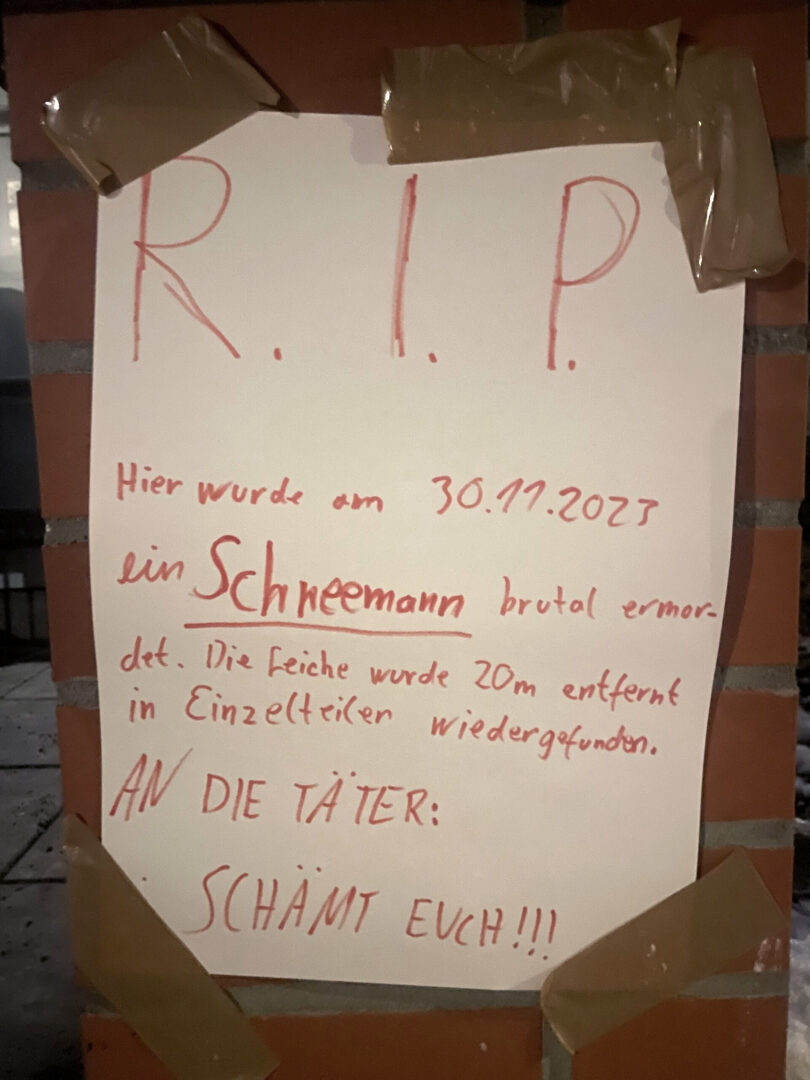 R. I. P.
Hier wurde am 30.11.2023
ein Schneemann brutal ermor-
det. Die Leiche wurde 20m entfernt
in Einzelteilen wiedergefunden.
AN DIE TÄTER:
SCHÄMT EUCH!!!